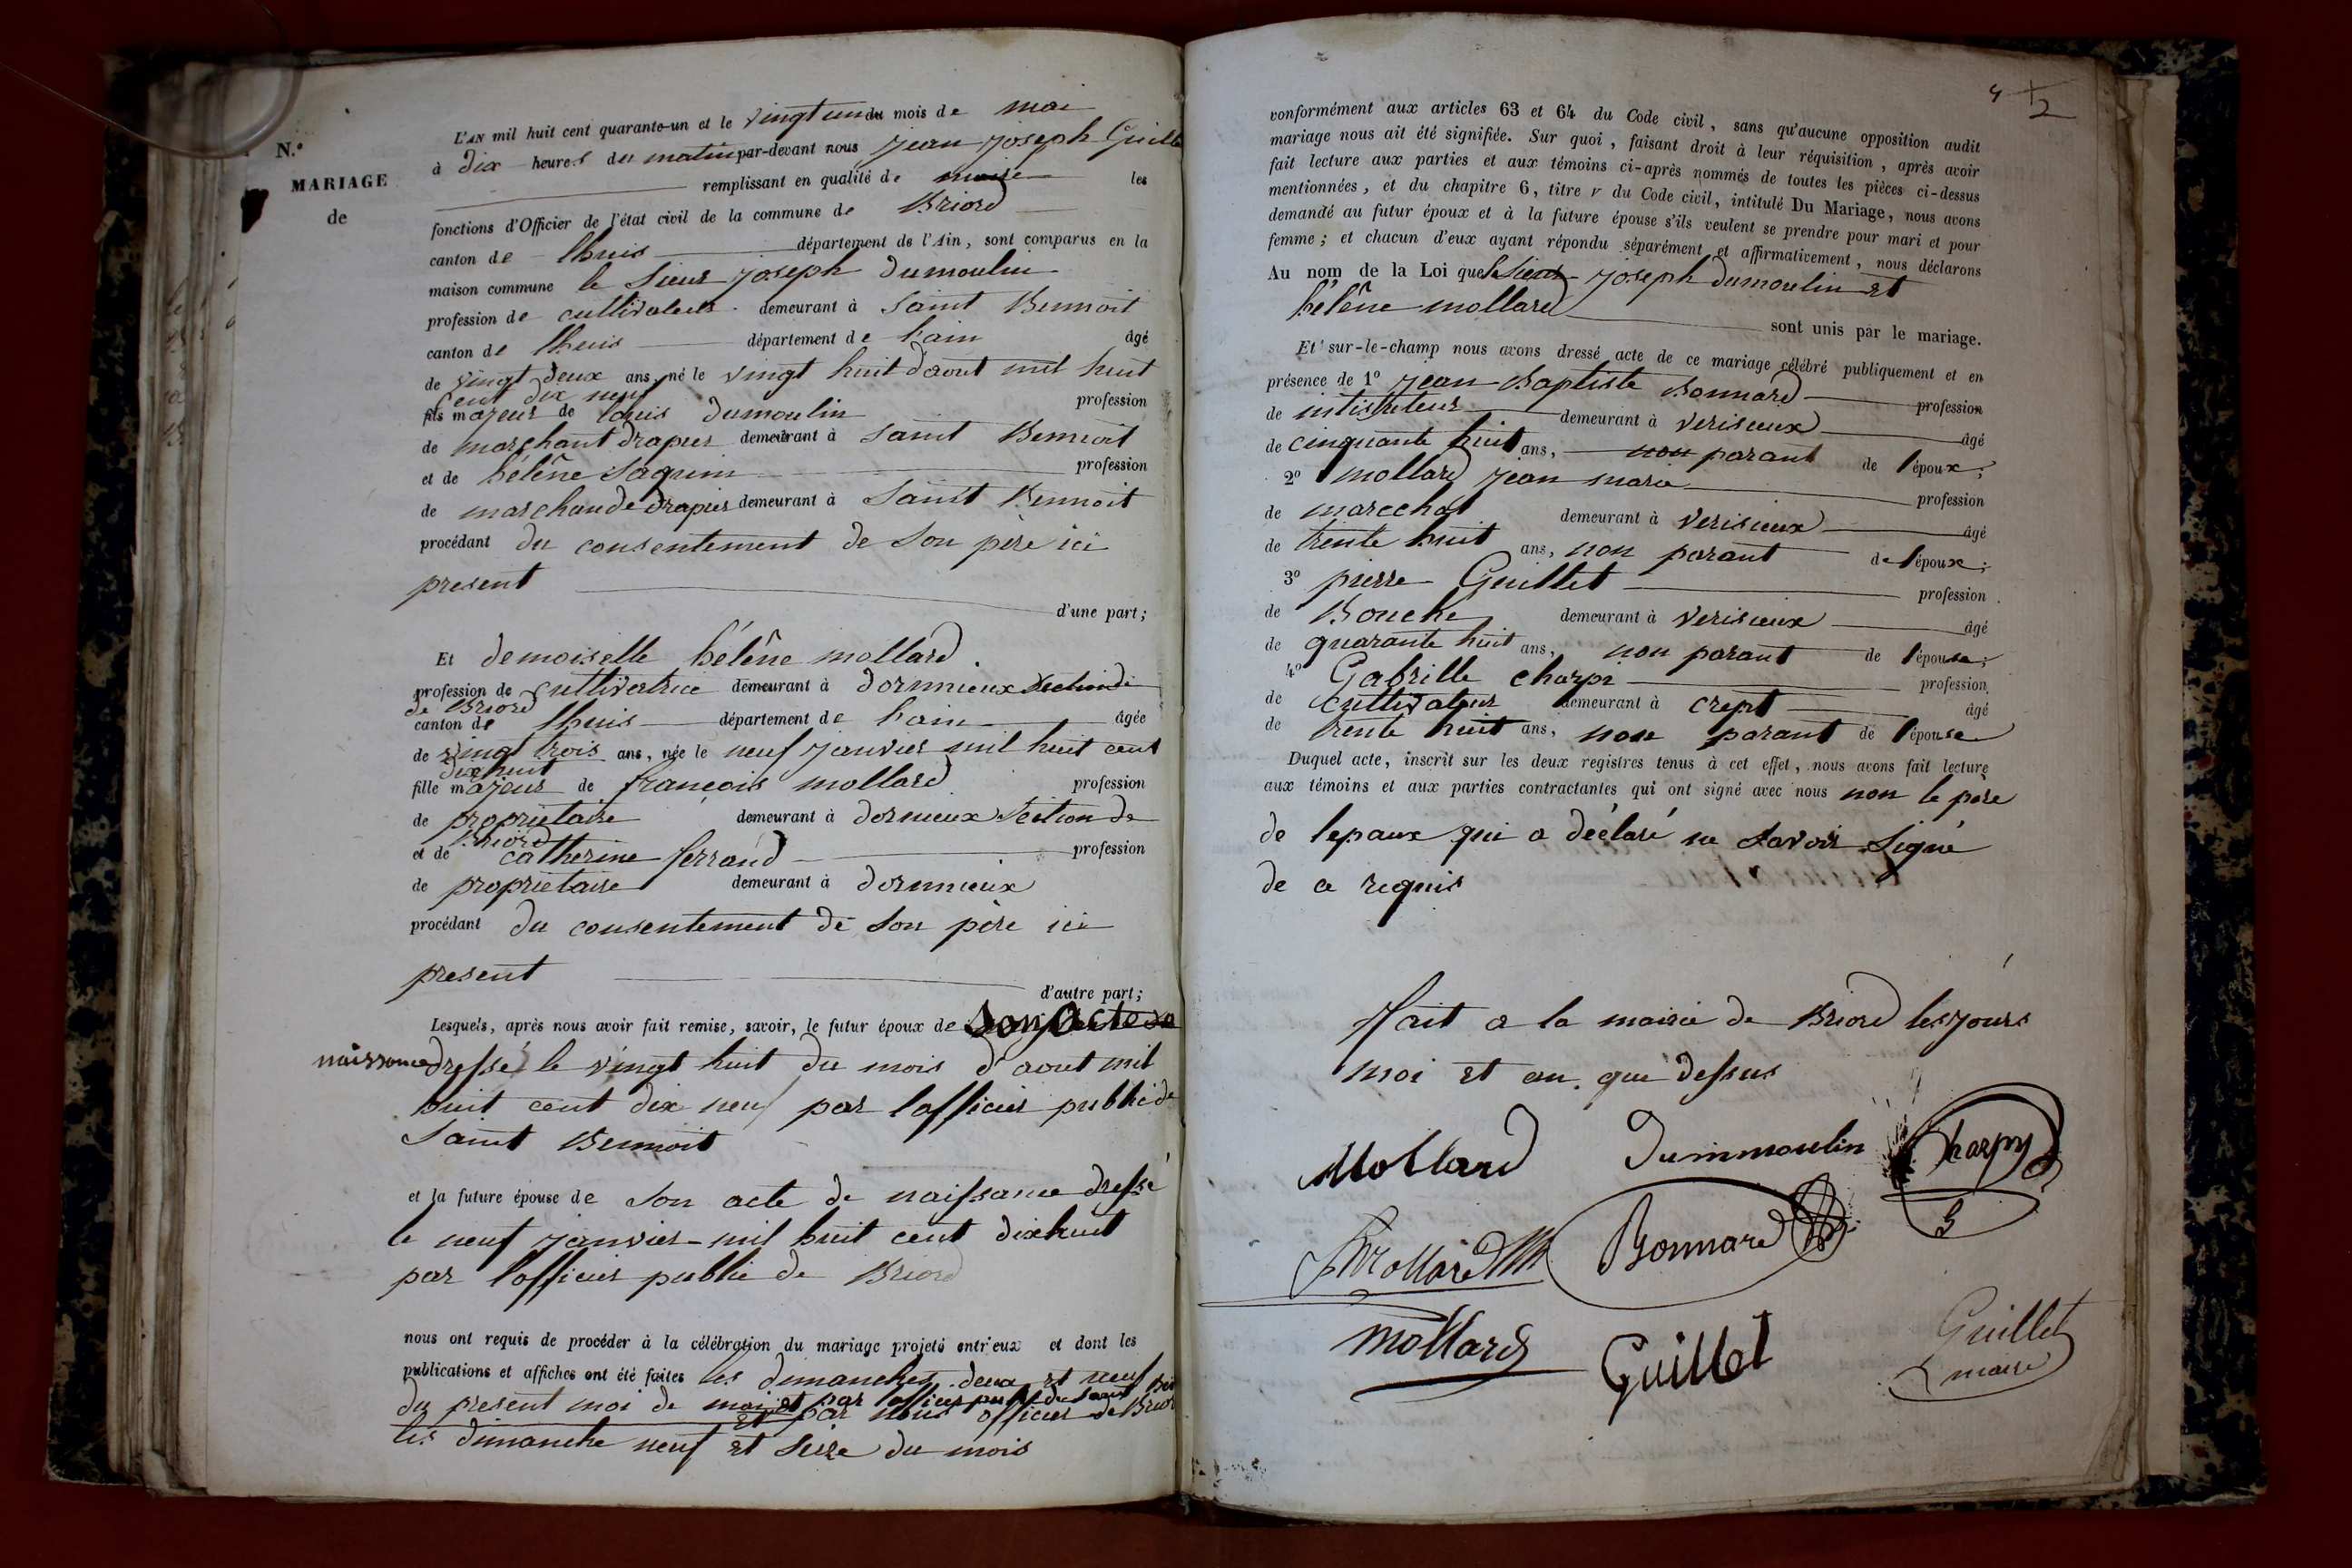 N.º
MARIAGE
de
L'AN mil huit cent quarante-un et le vingt un du mois de mai
à dix heures du matin par-devant nous jean joseph Guillet
remplissant en qualité de maire les
fonctions d'Officier de l'état civil de la commune de Briord
canton de lhuis département de l'Ain, sont comparus en la
maison commune le sieur joseph dumoulin
profession de cultivateur demeurant à saint Bennoit
canton de lhuis département de l'ain âgé
de vingt deux ans, né le vingt huit daout mil huit
cent dix neuf
fils majeur de louis dumoulin profession
de marchant drapier demeurant à saint Bennoit
et de hélêne saquin profession
de marchande drapier demeurant à saint Bennoit
procédant du consentement de son père ici
present
d'une part;
Et demoiselle hélêne mollard
profession de cultivatrice demeurant à dornmieux section de
de Briord
canton de lhuis département de l'ain âgée
de vingt trois ans, née le neuf janvier mil huit cent
dix huit
fille majeur de françois mollard profession
de proprietaire demeurant à dornieux section de
Briord
et de catherine ferrand profession
de proprietaire demeurant à dornmieux
procédant du consentement de son père ici
present
d'autre part;
Lesquels, après nous avoir fait remise, savoir, le futur époux de son acte de
naissance dressé le vingt huit du mois d'aout mil
huit cent dix neuf par lofficier public de
saint Bennoit
et la future épouse de son acte de naissance dressé
le neuf janvier mil huit cent dixhuit
par lofficier public de Briord
nous ont requis de procéder à la célébration du mariage projeté entr'eux et dont les
publications et affiches ont été faites les dimanches deux et neuf
du present moi de mai et par lofficier public de saint
et par nous officier de Briord
les dimanche neuf et seize du mois
4
2
conformément aux articles 63 et 64 du Code civil, sans qu'aucune opposition audit
mariage nous ait été signifiée. Sur quoi, faisant droit à leur réquisition, après avoir
fait lecture aux parties et aux témoins ci-après nommés de toutes les pièces ci-dessus
mentionnées, et du chapitre 6, titre V du Code civil, intitulé Du Mariage, nous avons
demandé au futur époux et à la future épouse s'ils veulent se prendre pour mari et pour
femme; et chacun d'eux ayant répondu séparément et affirmativement, nous déclarons
Au nom de la Loi que le sieur joseph dumoulin et
hélêne mollard sont unis par le mariage.
Et sur-le-champ nous avons dressé acte de ce mariage célébré publiquement et en
présence de 1º jean Baptiste Bonnard profession
de intisituteur demeurant à verisieux âgé
de cinquante huit ans, non parant de l'époux;
2º mollard jean marie profession
de marechal demeurant à verisieux âgé
de trente huit ans, non parant de l'époux;
3º pierre Guillet profession
de Bouche demeurant à verisieux âgé
de quarante huit ans, non parant de l'épouse;
4º Gabrille charpi profession
de cultivateur demeurant à crept âgé
de trente huit ans, non parant de l'épouse
Duquel acte, inscrit sur les deux registres tenus à cet effet, nous avons fait lecture
aux témoins et aux parties contractantes qui ont signé avec nous non le père
de lepaux qui a déclaré ne savoir signé
de ce requis
fait a la mairie de Briord les jours
moi et an que dessus
Mollard Dummoulin Charpy
Mollard JM Bonnard
mollard Guillet Guillet
maire